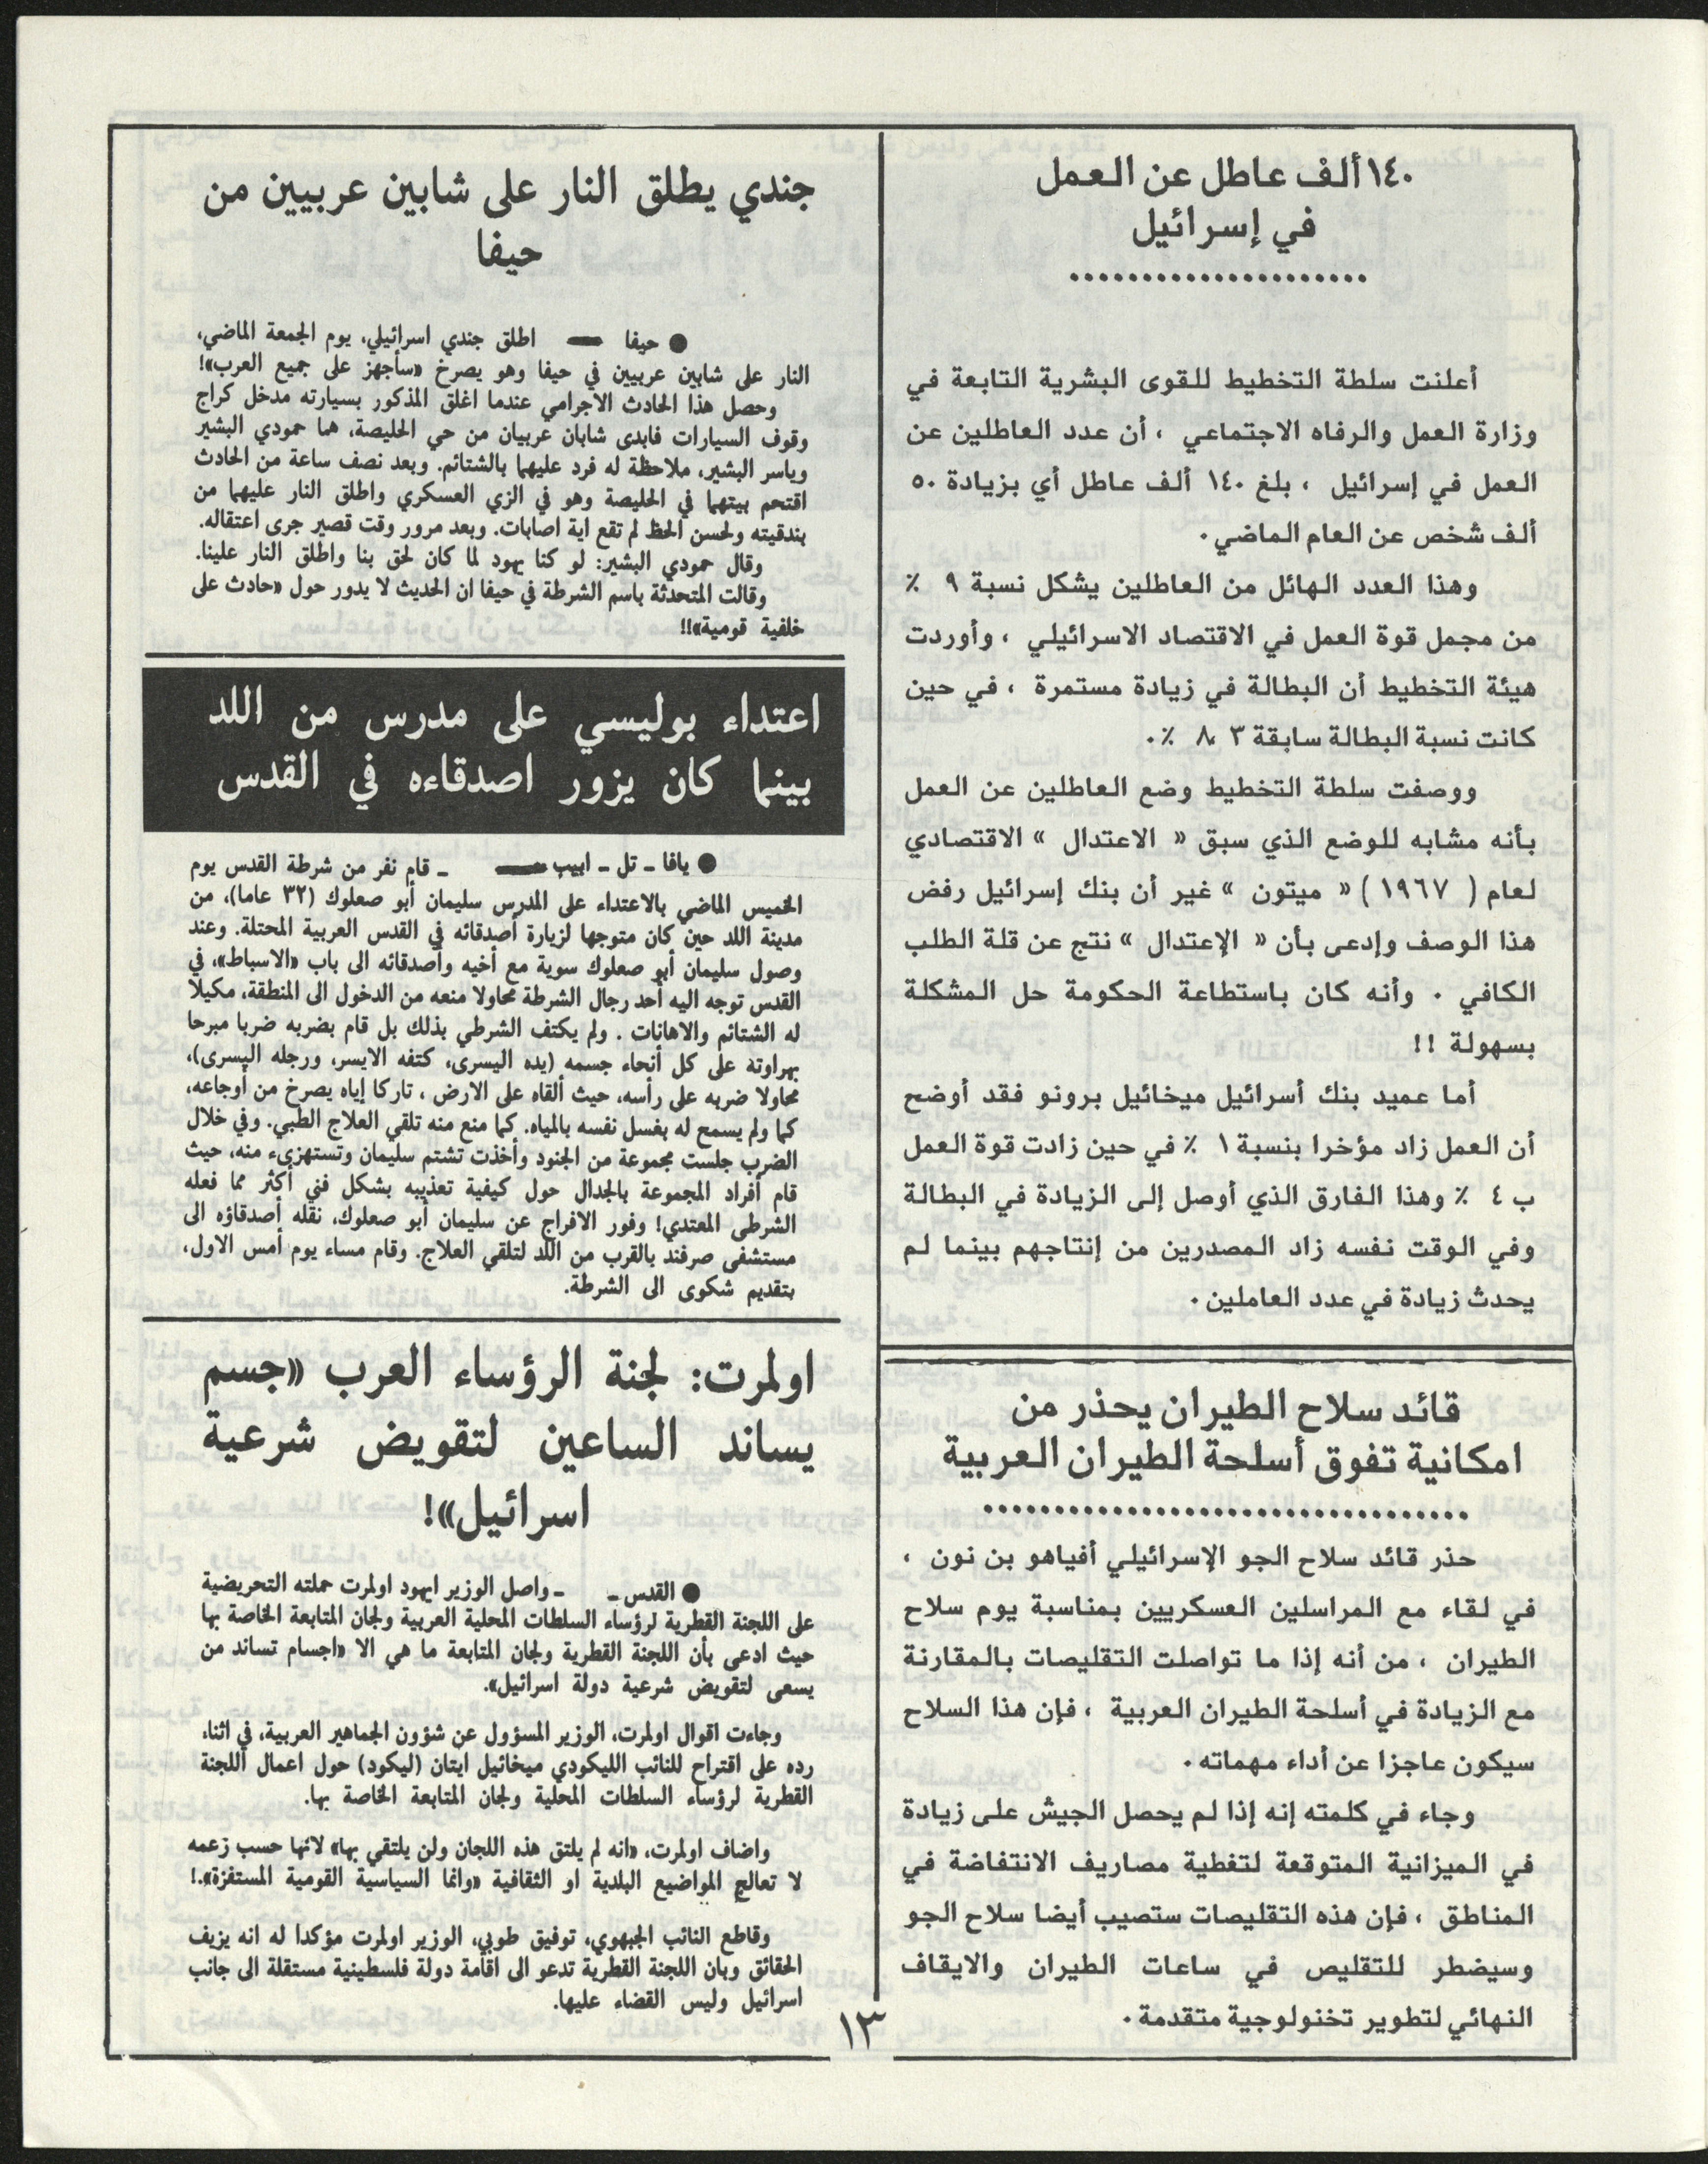 ١٤٠ ألف عاطل عن العمل
في إسرائيل
أعلنت سلطة التخطيط للقوى البشرية التابعة في
وزارة العمل والرفاه الاجتماعي ، أن عدد العاطلين عن
العمل في إسرائيل ، بلغ ١٤٠ ألف عاطل أي بزيادة ٥٠
ألف شخص عن العام الماضي .
وهذا العدد الهائل من العاطلين يشكل نسبة ٩ ٪
من مجمل قوة العمل في الاقتصاد الاسرائيلي ، وأوردت
هيئة التخطيط أن البطالة في زيادة مستمرة ، في حين
كانت نسبة البطالة سابقة ٣ ،٨ ٪ .
ووصفت سلطة التخطيط وضع العاطلين عن العمل
بأنه مشابه للوضع الذي سبق « الاعتدال » الاقتصادي
لعام ( ١٩٦٧ ) « ميتون » غير أن بنك إسرائيل رفض
هذا الوصف وإدعى بأن « الإعتدال » نتج عن قلة الطلب
الكافي . وأنه كان باستطاعة الحكومة حل المشكلة
بسهولة !!
أما عميد بنك أسرائيل ميخائيل برونو فقد أوضح
أن العمل زاد مؤخرا بنسبة ١ ٪ في حين زادت قوة العمل
ب ٤ ٪ وهذا الفارق الذي أوصل إلى الزيادة في البطالة
وفي الوقت نفسه زاد المصدرين من إنتاجهم بينما لم
يحدث زيادة في عدد العاملين .
قائد سلاح الطيران يحذر من
امكانية تفوق أسلحة الطيران العربية
حذر قائد سلاح الجو الإسرائيلي أفياهو بن نون ،
في لقاء مع المراسلين العسكريين بمناسبة يوم سلاح
الطيران ، من أنه إذا ما تواصلت التقليصات بالمقارنة
مع الزيادة في أسلحة الطيران العربية ، فإن هذا السلاح
سيكون عاجزا عن أداء مهماته .
وجاء في كلمته إنه إذا لم يحصل الجيش على زيادة
في الميزانية المتوقعة لتغطية مصاريف الانتفاضة في
المناطق ، فإن هذه التقليصات ستصيب أيضا سلاح الجو
وسيضطر للتقليص في ساعات الطيران والايقاف
النهائي لتطوير تخنولوجية متقدمة .
جندي يطلق النار على شابين عربيين من
حيفا
● حيفا — اطلق جندي اسرائيلي، يوم الجمعة الماضي،
النار على شابين عربيين في حيفا وهو يصرخ «سأجهز على جميع العرب»!
وحصل هذا الحادث الاجرامي عندما اغلق المذكور بسيارته مدخل كراج
وقوف السيارات فابدى شابان عربيان من حي الحليصة، هما حمودي البشير
وياسر البشير، ملاحظة له فرد عليهما بالشتائم. وبعد نصف ساعة من الحادث
اقتحم بيتهما في الحليصة وهو في الزي العسكري واطلق النار عليهما من
بندقيته ولحسن الحظ لم تقع اية اصابات. وبعد مرور وقت قصير جرى اعتقاله.
وقال حمودي البشير: لو كنا يهود لما كان لحق بنا واطلق النار علينا.
وقالت المتحدثة باسم الشرطة في حيفا ان الحديث لا يدور حول «حادث على
خلفية قومية»!!
اعتداء بوليسي على مدرس من اللد
بينما كان يزور اصدقاءه في القدس
● يافا ـ تل ـ ابيب — ـ قام نفر من شرطة القدس يوم
الخميس الماضي بالاعتداء على المدرس سليمان أبو صعلوك (٣٢ عاما)، من
مدينة اللد حين كان متوجها لزيارة أصدقائه في القدس العربية المحتلة. وعند
وصول سليمان أبو صعلوك سوية مع أخيه وأصدقائه الى باب «الاسباط»، في
القدس توجه اليه أحد رجال الشرطة محاولا منعه من الدخول الى المنطقة، مكيلا
له الشتائم والاهانات . ولم يكتف الشرطي بذلك بل قام بضربه ضربا مبرحا
بهراوته على كل أنحاء جسمه (يده اليسرى، كتفه الايسر، ورجله اليسرى)،
محاولا ضربه على رأسه، حيث ألقاه على الارض ، تاركا إياه يصرخ من أوجاعه،
كما ولم يسمح له بغسل نفسه بالمياه. كما منع منه تلقي العلاج الطبي. وفي خلال
الضرب جلست مجموعة من الجنود وأخذت تشتم سليمان وتستهزىء منه، حيث
قام أفراد المجموعة بالجدال حول كيفية تعذيبه بشكل فني أكثر مما فعله
الشرطي المعتدي! وفور الافراج عن سليمان أبو صعلوك، نقله أصدقاؤه الى
مستشفى صرفند بالقرب من اللد لتلقي العلاج. وقام مساء يوم أمس الاول،
بتقديم شكوى الى الشرطة.
اولمرت: لجنة الرؤساء العرب «جسم
يساند الساعين لتقويض شرعية
اسرائيل»!
● القدس ـ ـ واصل الوزير ايهود اولمرت حملته التحريضية
على اللجنة القطرية لرؤساء السلطات المحلية العربية ولجان المتابعة الخاصة بها
حيث ادعى بأن اللجنة القطرية ولجان المتابعة ما هي الا «اجسام تساند من
يسعى لتقويض شرعية دولة اسرائيل».
وجاءت اقوال اولمرت، الوزير المسؤول عن شؤون الجماهير العربية، في اثناء
رده على اقتراح للنائب الليكودي ميخائيل ايتان (ليكود) حول اعمال اللجنة
القطرية لرؤساء السلطات المحلية ولجان المتابعة الخاصة بها.
واضاف اولمرت، «انه لم يلتق هذه اللجان ولن يلتقي بها» لانها حسب زعمه
لا تعالج المواضيع البلدية او الثقافية «وانما السياسية القومية المستفزة».!
وقاطع النائب الجبهوي، توفيق طوبي، الوزير اولمرت مؤكدا له انه يزيف
الحقائق وبان اللجنة القطرية تدعو الى اقامة دولة فلسطينية مستقلة الى جانب
اسرائيل وليس القضاء عليها.
١٣